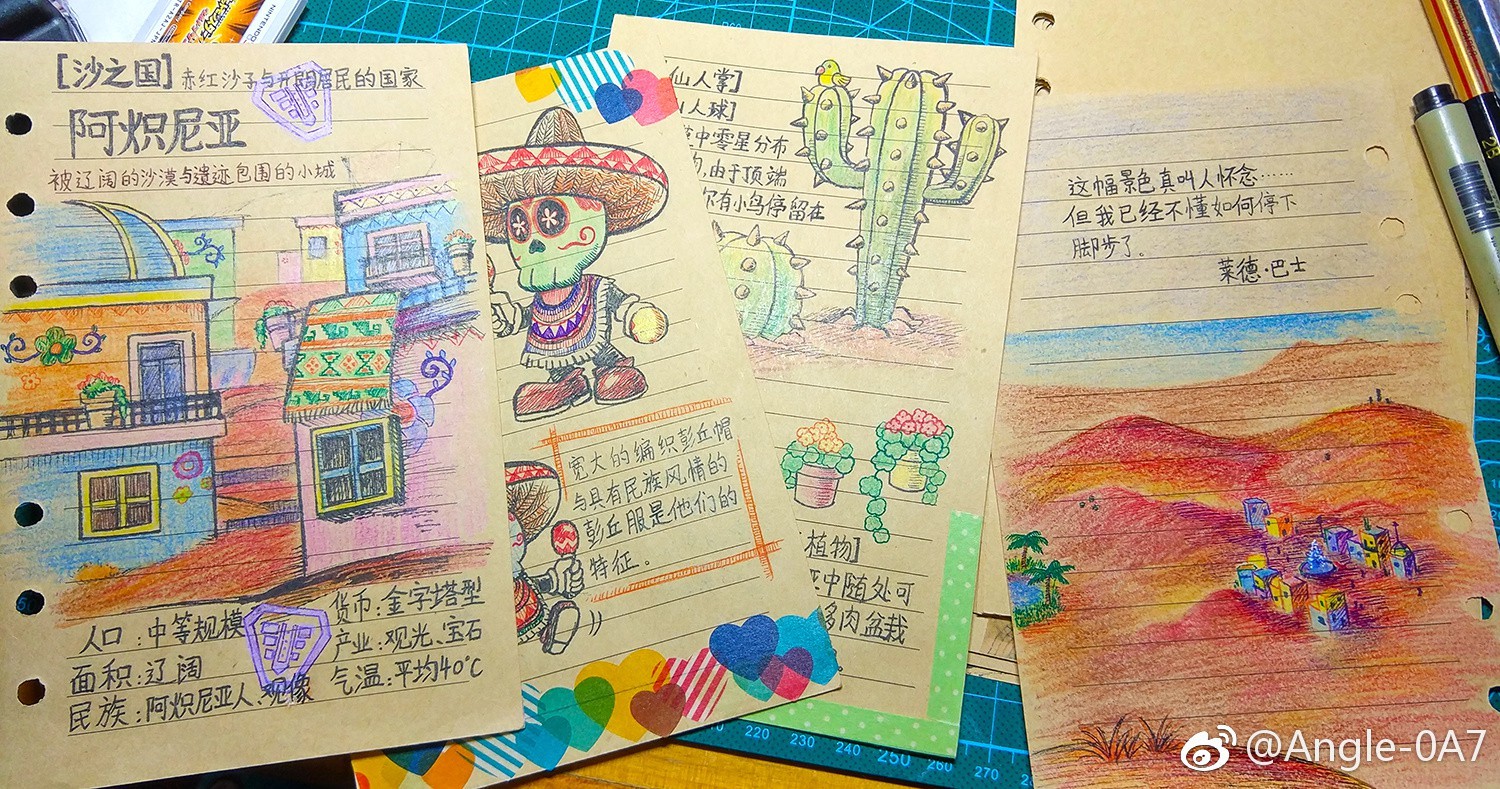 [沙之国] 赤红沙子与开朗居民的国家
阿炽尼亚
被辽阔的沙漠与遗迹包围的小城
人口:中等规模
面积:辽阔
民族:阿炽尼亚人、观像
货币:金字塔型
产业:观光、宝石
气温:平均40℃
宽大的编织彭丘帽
与具有民族风情的
彭丘服是他们的
特征。
仙人掌]
人球]
中零星分布
,由于顶端
尔有小鸟停留在
植物]
中随处可
多肉盆栽
这幅景色真叫人怀念……
但我已经不懂如何停下
脚步了。
莱德·巴士
NINTENDO
2B
220 230 240 250 260 270
@Angle-0A7